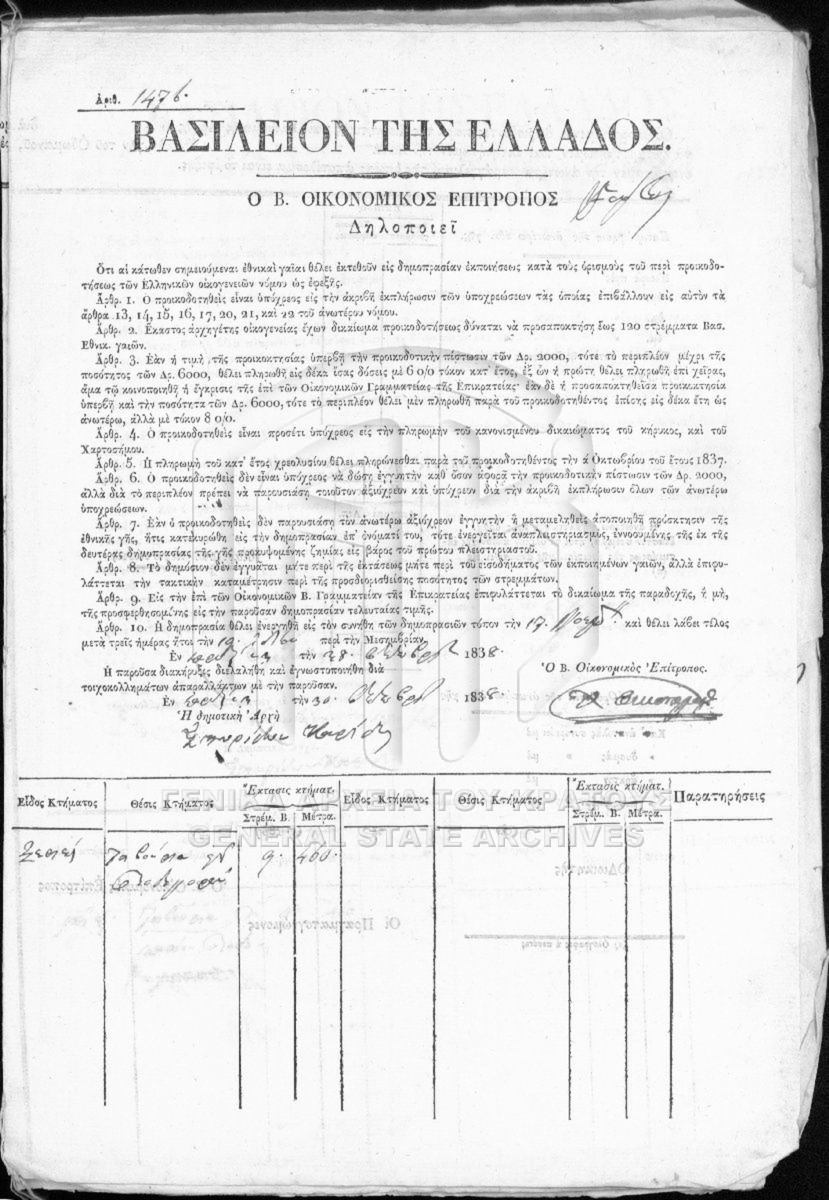 Ἀριθ. 1476.
ΒΑΣΙΛΕΙΟΝ ΤΗΣ ΕΛΛΑΔΟΣ.
Ο Β. ΟΙΚΟΝΟΜΙΚΟΣ ΕΠΙΤΡΟΠΟΣ
Δηλοποιεῖ
Ὅτι αἱ κάτωθεν σημειούμεναι ἐθνικαὶ γαῖαι θέλει ἐκτεθοῦν εἰς δημοπρασίαν ἐκποιήσεως κατὰ τοὺς ὁρισμοὺς τοῦ περὶ προικοδο-
τήσεως τῶν Ἑλληνικῶν οἰκογενειῶν νόμου ὡς ἐφεξῆς.
Ἄρθρ. 1. Ὁ προικοδοτηθεὶς εἶναι ὑπόχρεος εἰς τὴν ἀκριβῆ ἐκπλήρωσιν τῶν ὑποχρεώσεων τὰς ὁποίας ἐπιβάλλουν εἰς αὐτὸν τὰ
ἄρθρα 13, 14, 15, 16, 17, 20, 21, καὶ 22 τοῦ ἀνωτέρω νόμου.
Ἄρθρ. 2. Ἕκαστος ἀρχηγέτης οἰκογενείας ἔχων δικαίωμα προικοδοτήσεως δύναται νὰ προσαποκτήσῃ ἕως 120 στρέμματα Βασ.
Ἐθνικ. γαιῶν.
Ἄρθρ. 3. Ἐὰν ἡ τιμὴ τῆς προικοκτησίας ὑπερβῇ τὴν προικοδοτικὴν πίστωσιν τῶν Δρ. 2000, τότε τὸ περιπλέον μέχρι τῆς
ποσότητος τῶν Δρ. 6000, θέλει πληρωθῆ εἰς δέκα ἴσας δόσεις μὲ 6 0/0 τόκον κατ' ἔτος, ἐξ ὧν ἡ πρώτη θέλει πληρωθῆ ἐπὶ χεῖρας,
ἅμα τῷ κοινοποιηθῇ ἡ ἔγκρισις τῆς ἐπὶ τῶν Οἰκονομικῶν Γραμματείας τῆς Ἐπικρατείας· ἐὰν δὲ ἡ προσαποκτηθεῖσα προικοκτησία
ὑπερβῇ καὶ τὴν ποσότητα τῶν Δρ. 6000, τότε τὸ περιπλέον θέλει μὲν πληρωθῆ παρὰ τοῦ προικοδοτηθέντος ἐπίσης εἰς δέκα ἔτη ὡς
ἀνωτέρω, ἀλλὰ μὲ τόκον 8 0/0.
Ἄρθρ. 4. Ὁ προικοδοτηθεὶς εἶναι προσέτι ὑπόχρεος εἰς τὴν πληρωμὴν τοῦ κανονισμένου δικαιώματος τοῦ κήρυκος, καὶ τοῦ
Χαρτοσήμου.
Ἄρθρ. 5. Ἡ πληρωμὴ τοῦ κατ' ἔτος χρεολυσίου θέλει πληρώνεσθαι παρὰ τοῦ προικοδοτηθέντος τὴν ά Ὀκτωβρίου τοῦ ἔτους 1837.
Ἄρθρ. 6. Ὁ προικοδοτηθεὶς δὲν εἶναι ὑπόχρεος νὰ δώσῃ ἐγγυητὴν καθ' ὅσον ἀφορᾷ τὴν προικοδοτικὴν πίστωσιν τῶν Δρ. 2000,
ἀλλὰ διὰ τὸ περιπλέον πρέπει νὰ παρουσιάσῃ τοιοῦτον ἀξιόχρεον καὶ ὑπόχρεον διὰ τὴν ἀκριβῆ ἐκπλήρωσιν ὅλων τῶν ἀνωτέρω
ὑποχρεώσεων.
Ἄρθρ. 7. Ἐὰν ὁ προικοδοτηθεὶς δὲν παρουσιάσῃ τὸν ἀνωτέρω ἀξιόχρεον ἐγγυητὴν ἢ μεταμεληθεὶς ἀποποιηθῇ πρόσκτησιν τῆς
ἐθνικῆς γῆς, ἥτις κατεκυρώθη εἰς τὴν δημοπρασίαν ἐπ' ὀνόματί του, τότε ἐνεργεῖται ἀναπλειστηριασμὸς, ἐννοουμένης τῆς ἐκ τῆς
δευτέρας δημοπρασίας τῆς γῆς προκυψομένης ζημίας εἰς βάρος τοῦ πρώτου πλειστηριαστοῦ.
Ἄρθρ. 8. Τὸ δημόσιον δὲν ἐγγυᾶται μήτε περὶ τῆς ἐκτάσεως μήτε περὶ τοῦ εἰσοδήματος τῶν ἐκποιημένων γαιῶν, ἀλλὰ ἐπιφυ-
λάττεται τὴν τακτικὴν καταμέτρησιν περὶ τῆς προσδιορισθείσης ποσότητος τῶν στρεμμάτων.
Ἄρθρ. 9. Εἰς τὴν ἐπὶ τῶν Οἰκονομικῶν Β. Γραμματείαν τῆς Ἐπικρατείας ἐπιφυλάττεται τὸ δικαίωμα τῆς παραδοχῆς, ἢ μὴ,
τῆς προσφερθησομένης εἰς τὴν παροῦσαν δημοπρασίαν τελευταίας τιμῆς.
Ἄρθρ. 10. Ἡ δημοπρασία θέλει ἐνεργηθῆ εἰς τὸν συνήθη τῶν δημοπρασιῶν τόπον τὴν 17. καὶ θέλει λάβει τέλος
μετὰ τρεῖς ἡμέρας ἤτοι τὴν 19 περὶ τὴν Μεσημβρίαν.
Ἐν τὴν 28 1838.
Ὁ Β. Οἰκονομικὸς Ἐπίτροπος.
Ἡ παροῦσα διακήρυξις διελαλήθη καὶ ἐγνωστοποιήθη διὰ
τοιχοκολλημάτων ἀπαραλλάκτων μὲ τὴν παροῦσαν.
Ἐν τὴν 30 1838
Ἡ δημοτικὴ Ἀρχὴ
Εἶδος Κτήματος Θέσις Κτήματος Ἔκτασις κτήματ. Εἶδος Κτήματος Θέσις Κτήματος Ἔκτασις κτήματ. Παρατηρήσεις
Στρέμ. Β. Μέτρα. Στρέμ. Β. Μέτρα.
9. 400.
ΓΕΝΙΚΑ ΑΡΧΕΙΑ ΤΟΥ ΚΡΑΤΟΥΣ
GENERAL STATE ARCHIVES